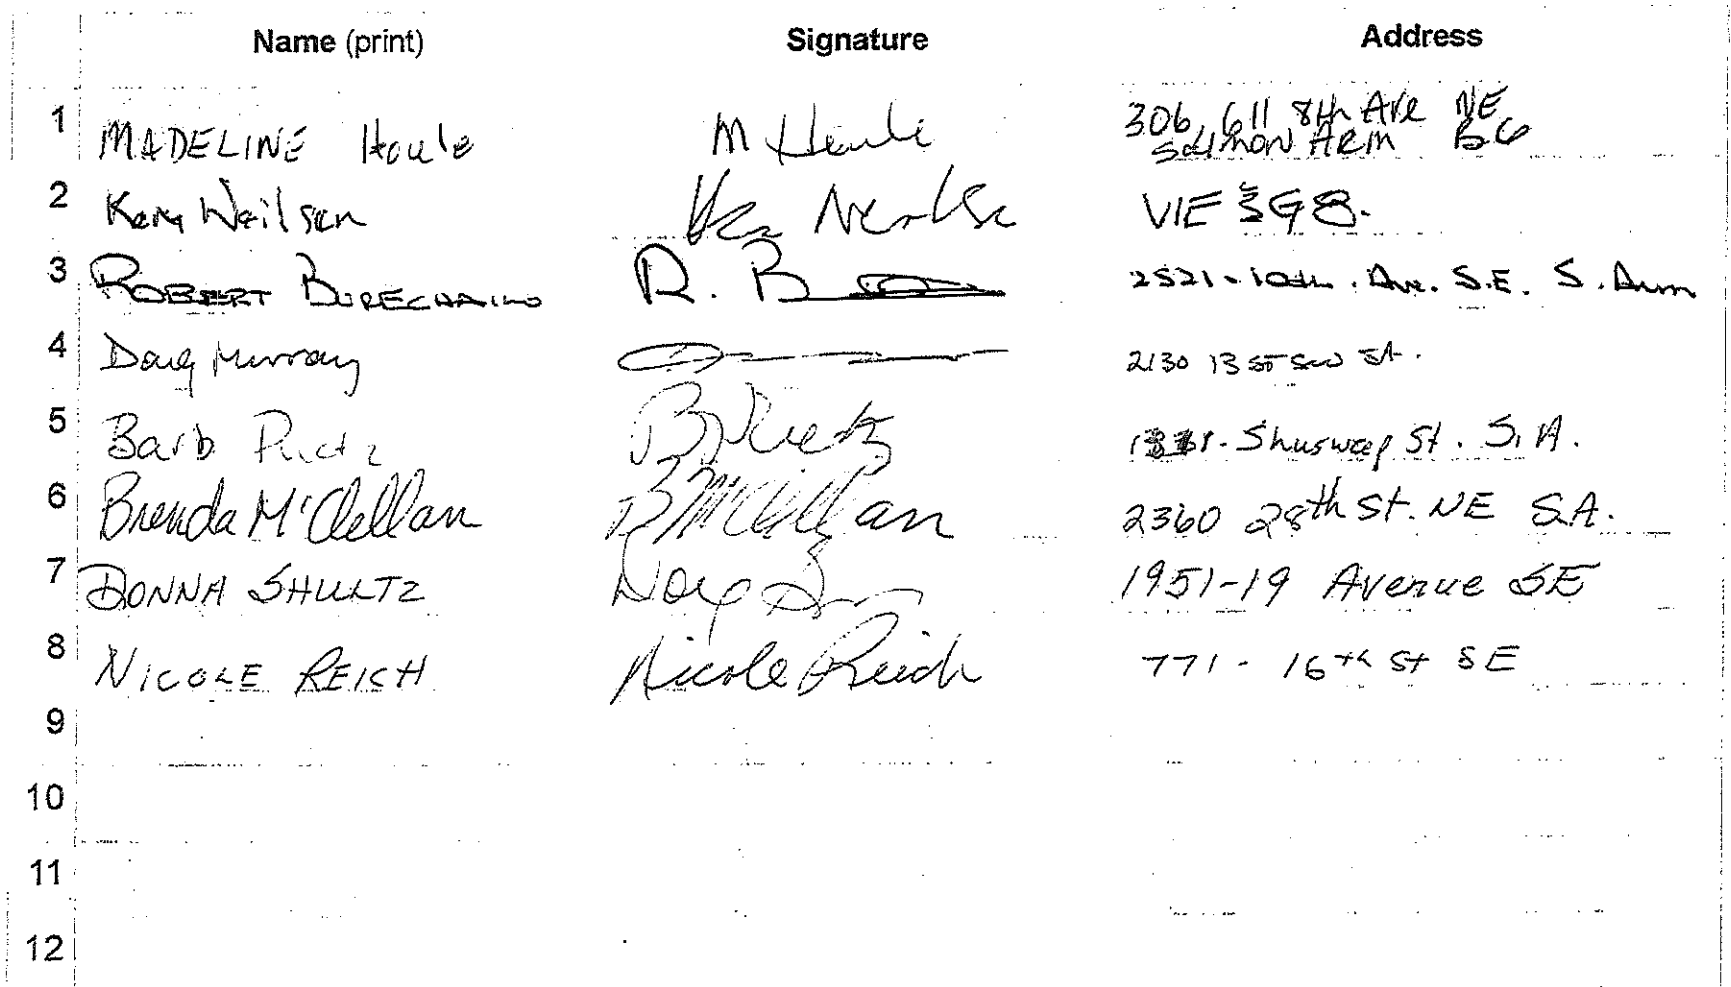 Name (print) Signature Address
1 MADELINE Houle M Houle 306, 611 8th Ave NE
Salmon ARM BC
2 Neilsen V1E 3G8.
3 ROBERT R. B 2521-10th. Ave. S.E. S. Arm
4 Doug Murray 2130 13 ST SW SA.
5 Barb Shuswap St. S.A.
6 Brenda McClellan B McClellan 2360 28th St. NE S.A.
7 DONNA SHULTZ 1951-19 Avenue SE
8 NICOLE REICH Nicole Reich 771 - 16th St SE
9
10
11
12